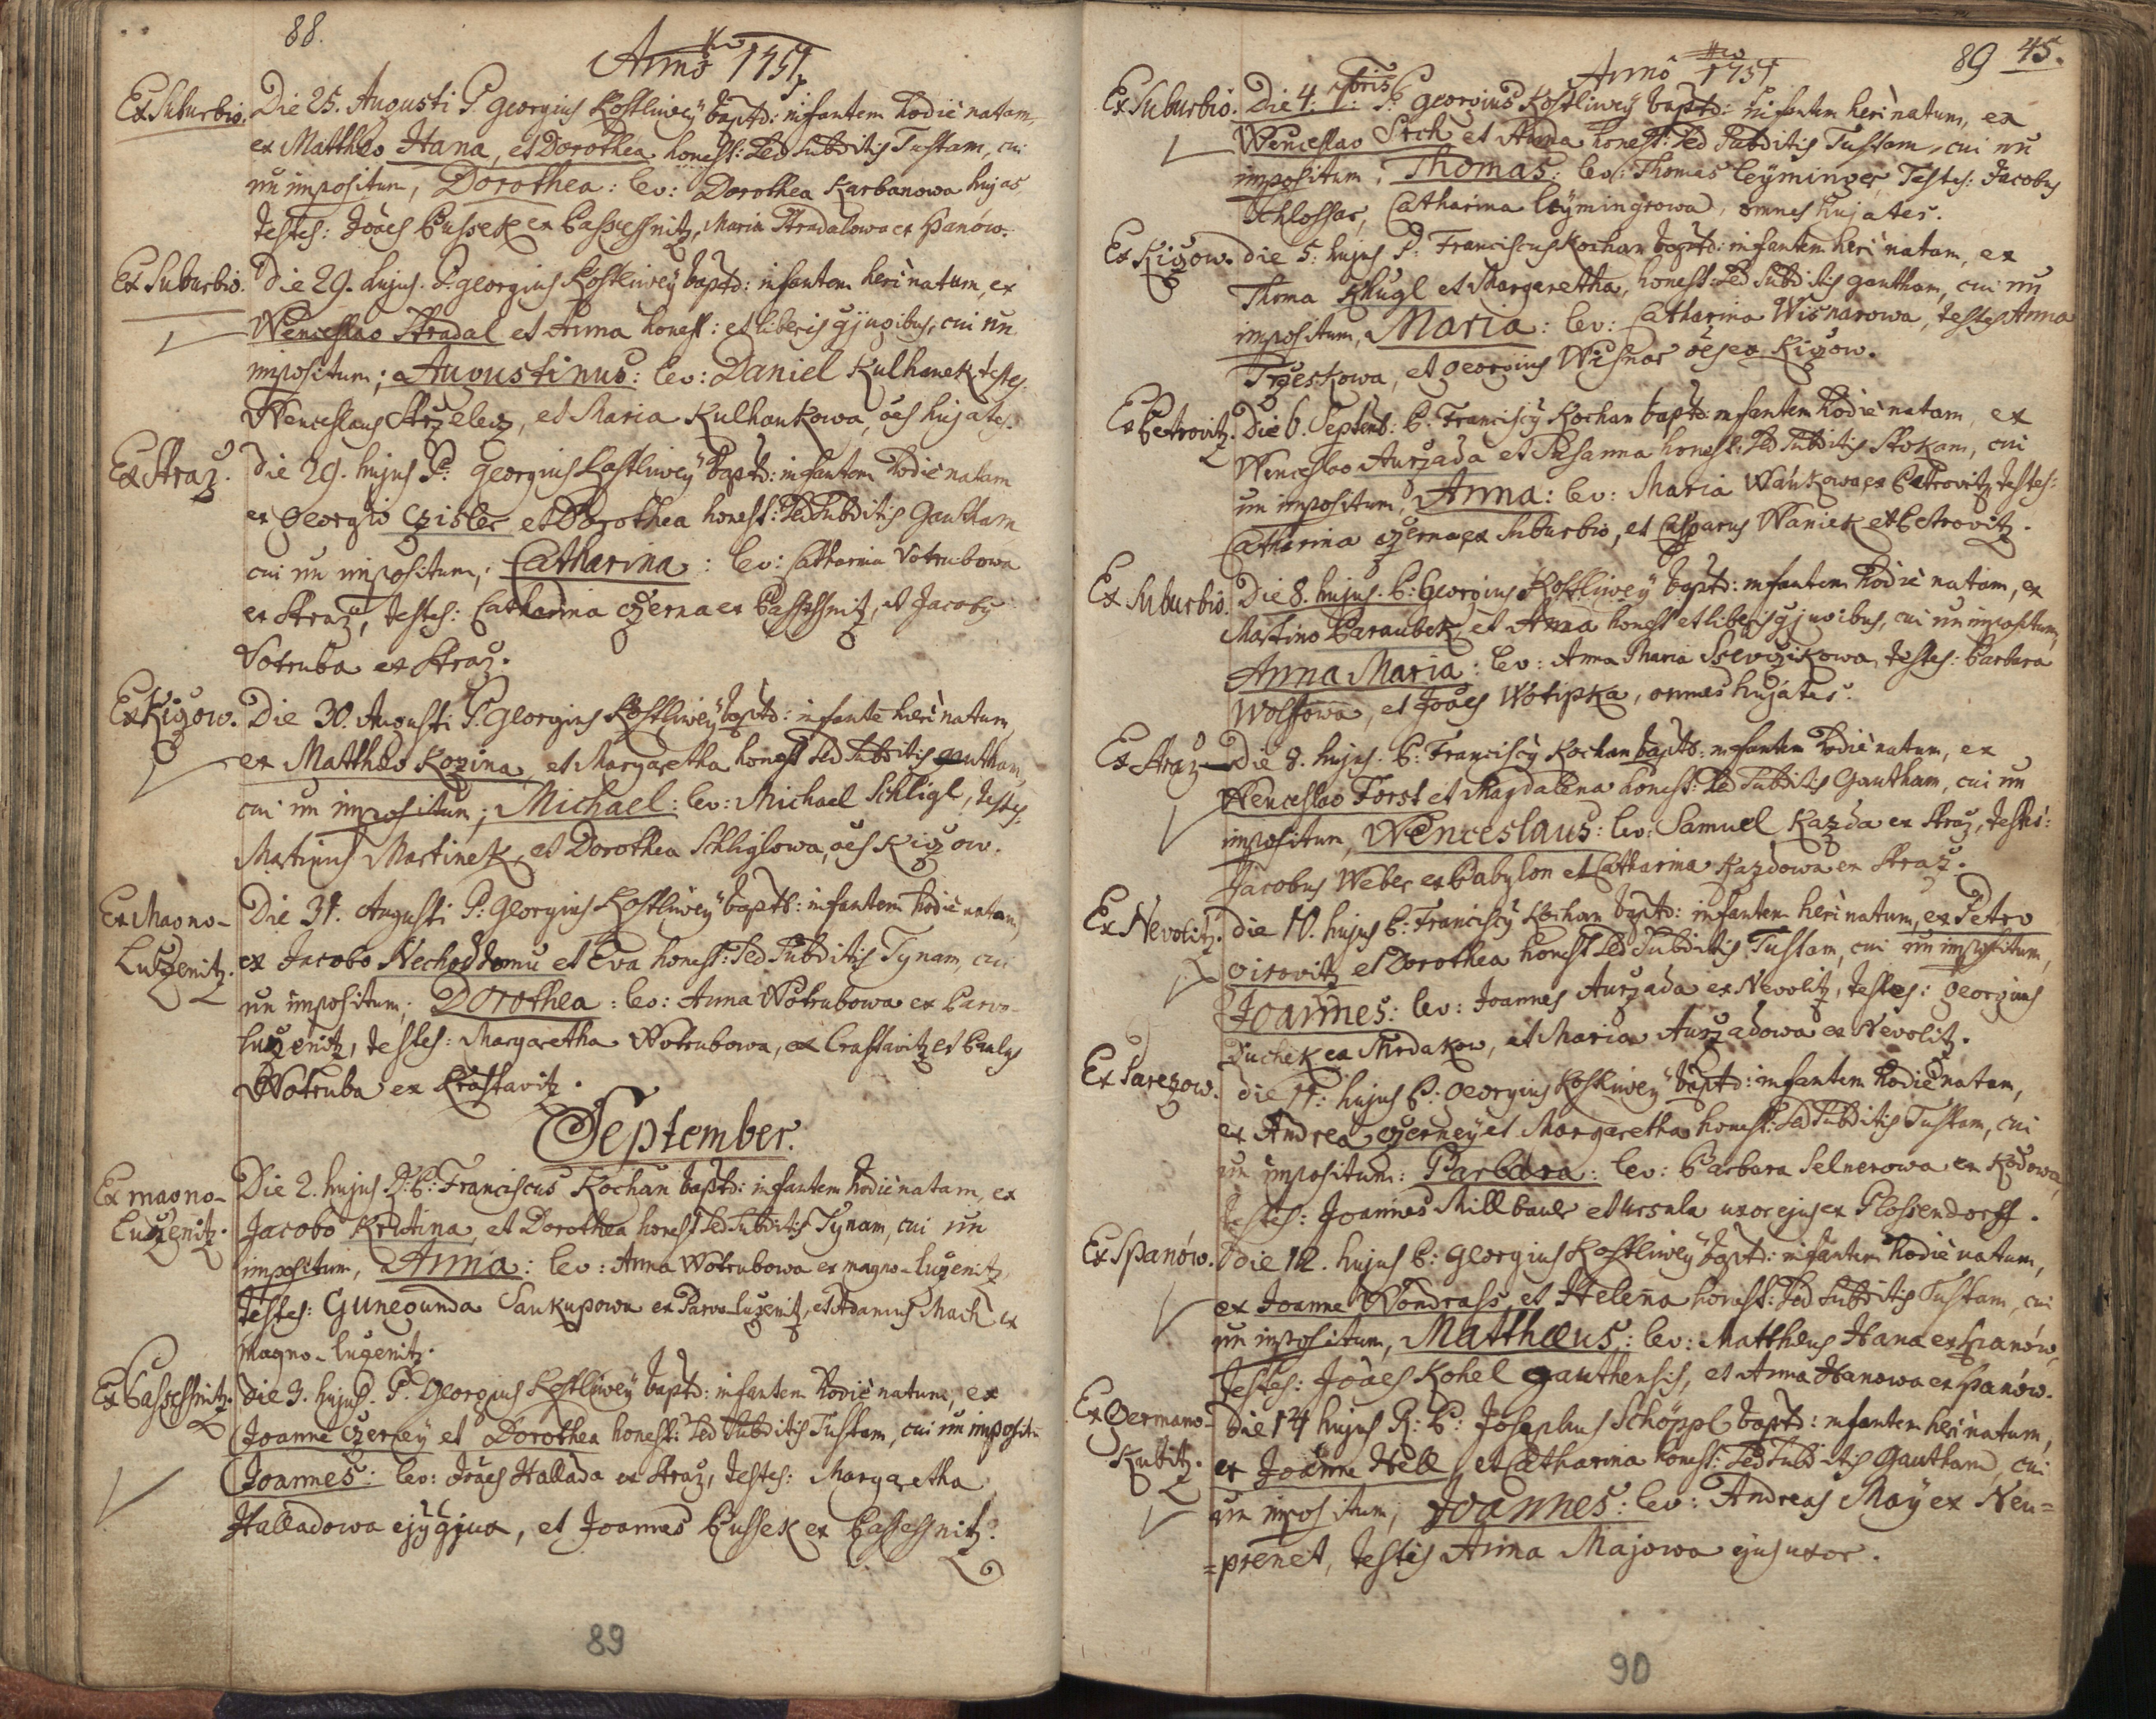 88.
Anno 1751
Ex Suburbio. Die 25. Augusti P. Georgius Kostliwey baptd: infantem hodie natam,
ex Matthæo Hana, et Dorothea honest: sed subditis Tustam, cui
nn impositum, Dorothea: lev: Dorothea Karbanowa hujas
testes: Joães Bussek ex Passeschnitz, Maria Stradalowa ex Spanów.
Ex Suburbio. Die 29. hujus. P. Georgius Kostliwey baptd: infantem heri natum, ex
Wenceslao Stradal et Anna honest: et liberis gjugibus, cui nn
impositum; Augustinus: lev: Daniel Kulhanek testes:
Wenceslaus Strzelecz, et Maria Kulhankowa, oẽs hujates.
Ex Straz. Die 29. hujus P. Georgius Kostliwey baptd: infantem hodie natam
ex Georgio Czisler et Dorothea honest: sed subditis Gautham
cui nn impositum, Catharina: lev: Catharina Votrubowa
ex Straz, testes: Catharina Czerna ex Passeschnitz, et Jacobus
Votruba ex Straz.
Ex Kizow. Die 30. Augusti P. Georgius Kostliwey baptd: infante heri natum
ex Matthæo Kozina, et Margaretha honest sed subditis Gautham,
cui nn impositum; Michael: lev: Michael Schligl, testes:
Martinus Martinek, et Dorothea Schliglowa, oẽs Kizow.
Ex Magno- Die 31. Augusti P: Georgius Kostliwey baptd: infantem hodie natam,
Luzenitz. ex Jacobo Nechoddomu et Eva honest: sed subditis Tynam, cui
nn impositum; Dorothea: lev: Anna Wotrubowa ex Parvo-
Luzenitz, testes: Margaretha Wotrubowa, ex Crastavitz et
Wotruba ex Krastavitz.
September.
Ex magno- Die 2. hujus. P: Franciscus Kochan baptd: infantem hodie natam, ex
Luzenitz. Jacobo Kristina, et Dorothea honest sed subditis Tynam, cui nn
impositum, Anna: lev: Anna Wotrubowa ex magno-Luzenitz
testes: Gunegunda Saukupowa ex Parvo-Luzenitz, et Adamus Mach ex
magno-Luzenitz.
Ex Passeschnitz. Die 3. hujus. P. Georgius Kostliwey baptd: infantem hodie natum, ex
Joanne Czerney et Dorothea honest: sed subditis Tustam, cui nn impositũ
Joannes: lev: Joães Hallada ex Straz, testes: Margaretha
Halladowa ejus gjux, et Joannes Bussek ex Passeschnitz.
89
89 45.
Anno 1751
Ex Suburbio. Die 4: 7bris P: Georgius Kostliwey baptd: infantem heri natum, ex
Wenceslao Stich et Anna honest: sed subditis Tustam, cui nn
impositum, Thomas: lev: Thomas Leyminger, Testes: Jacobus
Schlossar, Catharina Leymingrowa, omnes hujates.
Ex Kizow. die 5: hujus P: Franciscus Kochan baptd: infantem heri natam, ex
Thoma Khugl et Margaretha, honest: sed subditis Gautham, cui nn
impositum, Maria: lev: Catharina Wisnarowa, testes Anna
Trzeskowa, et Georgius Wisnar oẽs ex Kizow.
Ex Petrovitz. Die 6. Septemb: P. Franciscus Kochan baptd: infantem hodie natam, ex
Wenceslao Aurzada et Susanna honest: sed subditis Stokam, cui
nn impositum, Anna: lev: Maria Wankowa ex Petrovitz, testes:
Catharina Czerna ex Suburbio, et Casparus Waniek ex Petrovitz.
Ex Suburbio. Die 8. hujus. P: Georgius Kostliwey baptd: infantem hodie natam, ex
Martino Paraubek et Anna honest et liberis gjugibus, cui nn impositum,
Anna Maria: lev: Anna Maria Ssevczikowa, testes: Barbara
Wolfowa, et Joães Wotipka, omnes hujates.
Ex Straz Die 8. hujus. P: Franciscus Kochan baptd: infantem hodie natum, ex
Wenceslao Forst et Magdalena honest: sed subditis Gautham, cui nn
impositum, Wenceslaus: lev: Samuel Kazda ex Straz, testes:
Jacobus Weber ex Babylon et Catharina Kazdowa ex Straz.
Ex Nevolitz. die 10. hujus P: Franciscus Kochan baptd: infantem heri natum, ex Petro
Girovitz et Dorothea honest sed subditis Tustam, cui nn impositum,
Joannes: lev: Joannes Aurzada ex Nevolitz, testes: Georgius
Duchek ex Mrdakow, et Maria Aurzadowa ex Nevolitz.
Ex Parezow. die 11: hujus P: Georgius Kostliwey baptd: infantem hodie natam,
ex Andrea Czerney et Margaretha honest: sed subditis Tustam, cui
nn impositum: Barbara: lev: Barbara Selnerowa ex Kodowa,
testes: Joannes Millbaur et Ursula uxor ejus ex Plossendorff.
Ex Spanów. Die 12. hujus P: Georgius Kostliwey baptd: infantem hodie natum,
ex Joanne Wondrass, et Helena honest: sed subditis Tustam, cui
nn impositum, Matthæus: lev: Matthæus Hana ex Spanów,
testes: Joães Kohel Gauthensis, et Anna Hanowa ex Spanów.
Ex Germano- Die 14 hujus R: P: Josephus Schöppl baptd: infantem heri natum,
Kubitz. ex Joanne Hell, et Catharina honest: sed subditis Gautham, cui
nn impositum, Joannes: lev: Andreas May ex Neu=
=prenet, testis Anna Majowa ejus uxor.
90